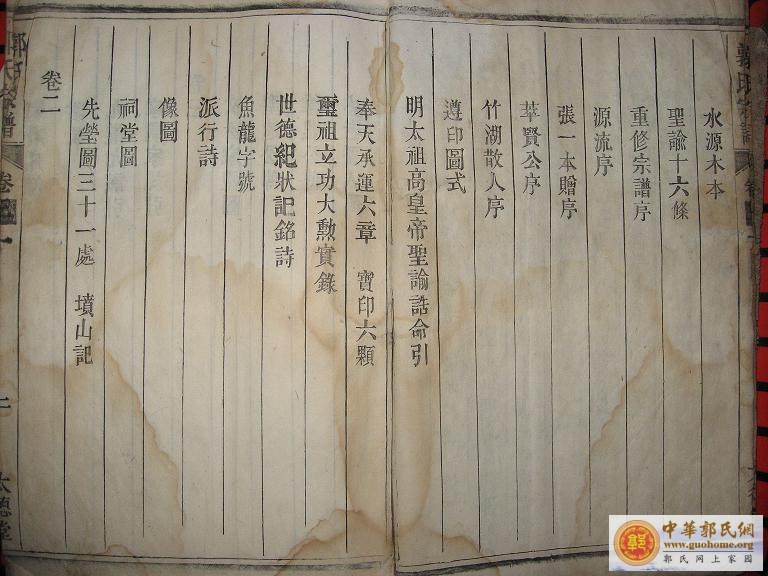 水源木本
聖諭十六條
重修宗譜序
源流序
張一本贈序
萃賢公序
竹湖散人序
遵印圖式
明太祖高皇帝聖諭誥命引
奉天承運六章 寶印六顆
璽祖立功大勲實錄
世德紀狀記銘詩
魚龍字號
派行詩
像圖
祠堂圖
先塋圖三十一處 墳山記
卷二
郭氏宗譜
卷
一
二
大德堂
氏宗譜
中華郭氏網
www.guohome.org
郭氏网上家园